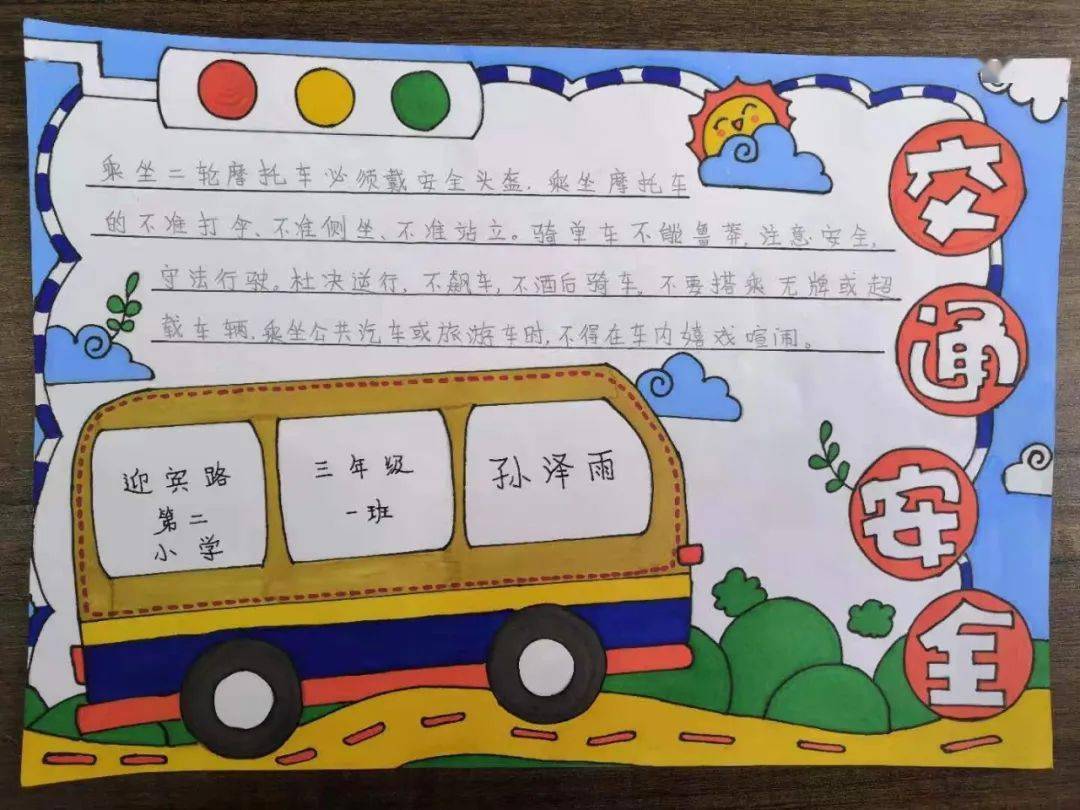 交通安全
乘坐二轮摩托车必须戴安全头盔.乘坐摩托车
的不准打伞、不准侧坐、不准站立。骑单车不能鲁莽,注意安全,
守法行驶。杜决逆行,不飙车,不酒后骑车。不要搭乘无牌或超
载车辆,乘坐公共汽车或旅游车时,不得在车内嬉戏喧闹。
迎宾路
第二
小学
三年级
一班
孙泽雨